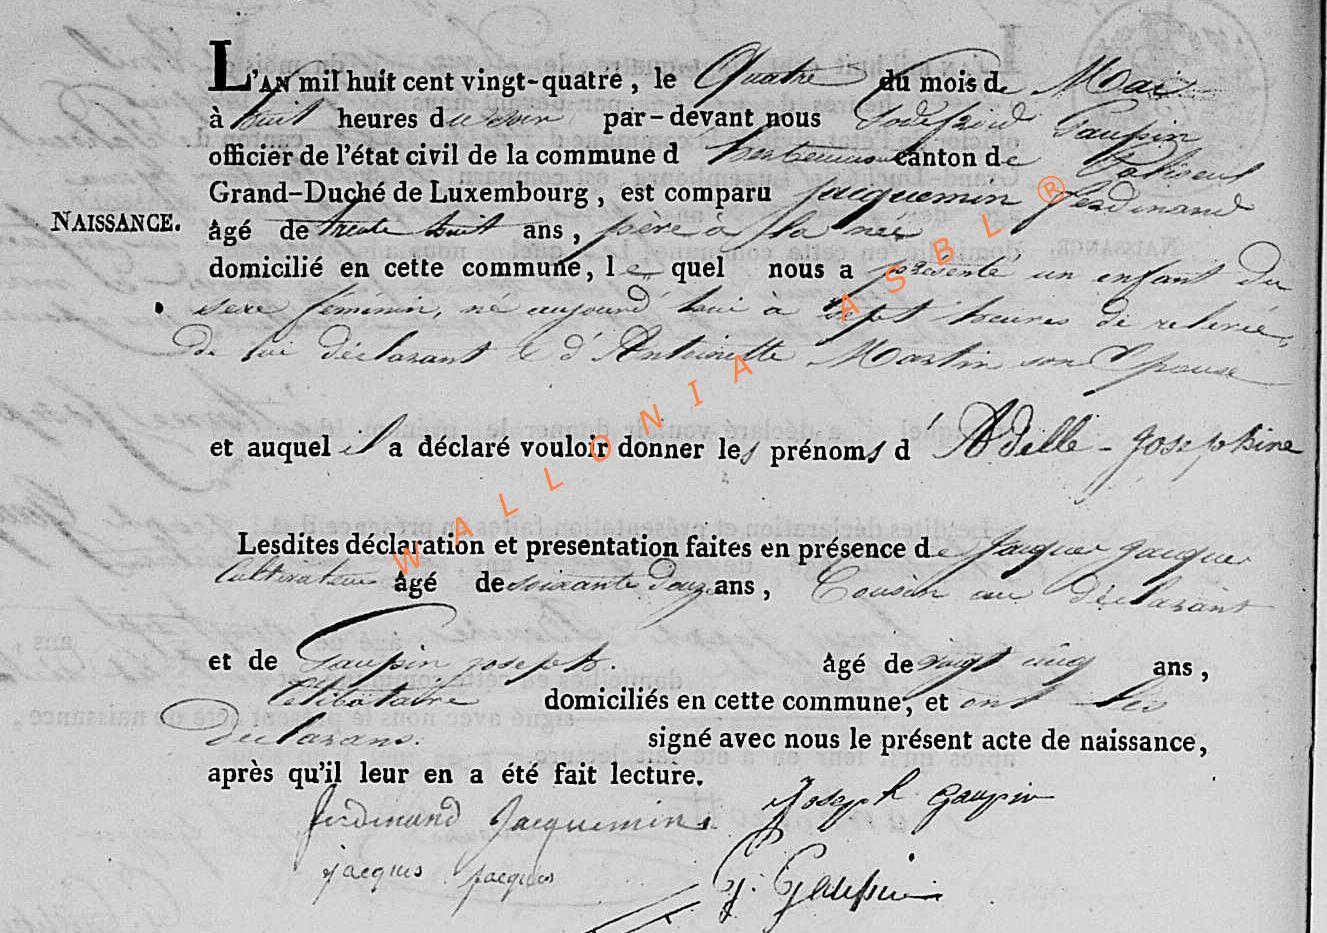 L'AN mil huit cent vingt-quatre, le Quatre du mois de Mai
à huit heures du soir par-devant nous Godefroid Gaupin
officier de l'état civil de la commune d canton de
Grand-Duché de Luxembourg, est comparu jacquemin ferdinand
NAISSANCE.
âgé de trente huit ans, père à la née
domicilié en cette commune, le quel nous a présenté un enfant du
sexe féminin, né aujourd'hui à sept heures de relevée,
de lui déclarant & d'Antoinette Martin son Epouse
et auquel il a déclaré vouloir donner les prénoms d'Adelle-Josephine
Lesdites déclaration et presentation faites en présence de Jacques Jacques
Cultivateur âgé de soixante douze ans, Cousin au déclarant
et de Gaupin joseph. âgé de vingt cinq ans,
Celibataire domiciliés en cette commune, et ont les
declarans. signé avec nous le présent acte de naissance,
après qu'il leur en a été fait lecture.
ferdinand Jacquemin Joseph Gaupin
jacques jacques G. Gaupin
WALLONIA ASBL ®